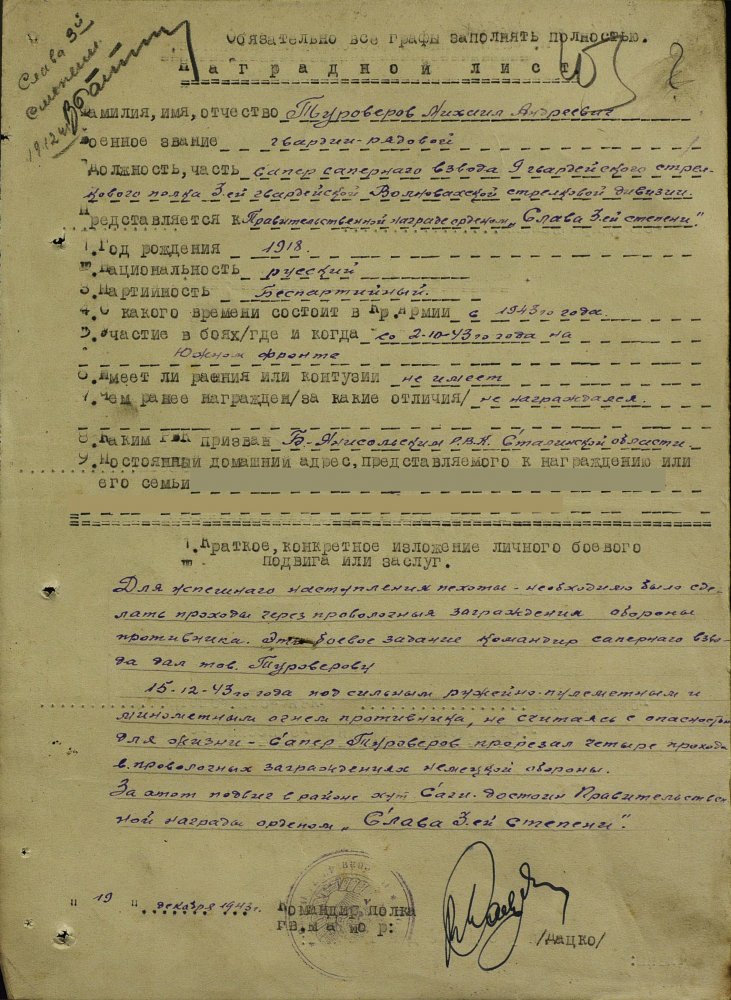 Слава 3й
степени
Обязательно все графы заполнять полностью.
Наградной лист
Фамилия, имя, отчество Туроверов Михаил Андреевич
Военное звание гвардии-рядовой
Должность, часть сапер саперного взвода 9 гвардейского стрел-
кового полка 3-ей гвардейской Волновахской стрелковой дивизии.
Представляется к Правительственной награде орденом „Слава 3-ей степени".
1. Год рождения 1918.
Национальность русский
3. Партийность Беспартийный.
4. С какого времени состоит в Кр.Армии с 1943го года.
5. Участие в боях/где и когда со 2-10-43го года на
Южном фронте
6. Имеет ли раения или контузии не имеет
7. Чем ранее награжден/за какие отличия/ не награждался.
8. Каким РВК призван Б-Янисольским Р.В.К. Сталинской области.
9. Постоянный домашний адрес, представляемого к награждению или
его семьи
1. Краткое, конкретное изложение личного боевого
подвига или заслуг.
Для успешнаго наступления пехоты - необходимо было сде-
лать проходы через проволочныя заграждения обороны
противника. Это боевое задание командир саперного взво-
да дал тов. Туроверову
15-12-43го года под сильным ружейно-пулеметным и
минометным огнем противника, не считаясь с опасностью
для жизни - сапер Туроверов прорезал четыре прохода
в проволочных заграждениях немецкой обороны.
За этот подвиг в районе хут Саги. достоин Правительствен
ной награды орденом „Слава 3-ей степени".
"19" декабря 1943г.
Командир полка
гв.майор:
/Дацко/